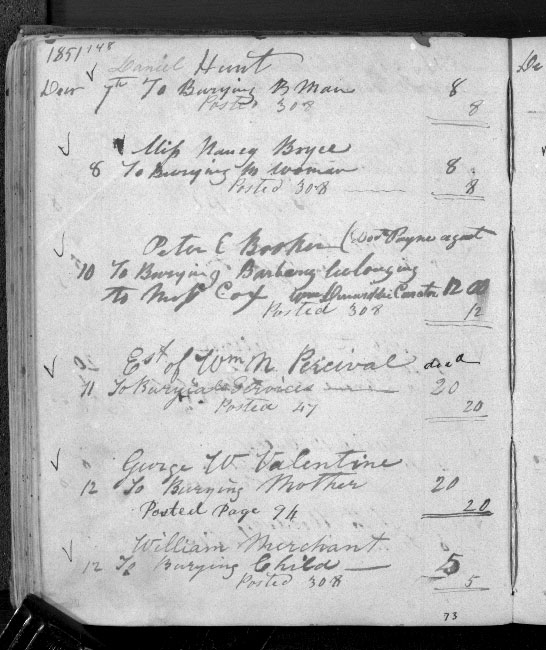 1851 148
Daniel Hunt
Decr 7th To Burying B Man 8
Posted 308 8
Miss Nancy Boyce
8 To Burying W Woman 8
Posted 308 8
Peter C Booker (Doct Payne agent
10 To Burying Barbary belonging
to Miss Cox Wm 12 00
Posted 308 12
Est of Wm N Percival decd
11 To Burycal Services 20
Posted 47 20
George W Valentine
12 To Burying Mother 20
Posted Page 94 20
William Merchant
12 To Burying Child 5
Posted 308 5
73
De